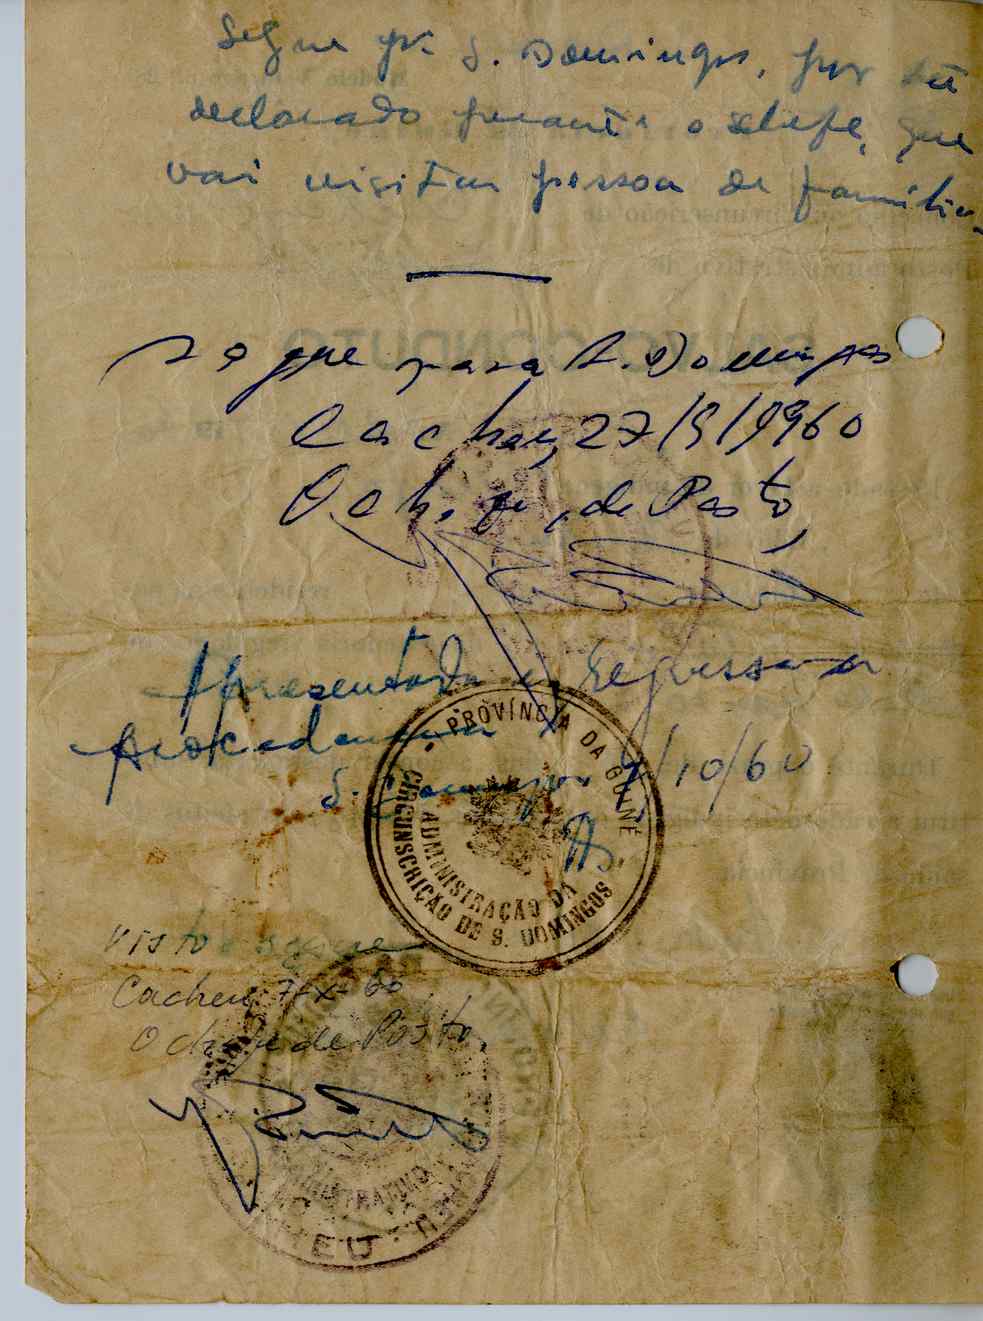 Segue pª S. Domingos, por ter
declarado perante o chefe, que
vai visitar pessoa de família.
Segue para S. Domingos
Cacheu, 27/9/1960
O chefe, de Posto,
Apresentado e Regressa a
procedencia
S. Domingos 1/10/60
PROVÍNCIA DA GUINÉ
ADMINISTRAÇÃO DA
CIRCUNSCRIÇÃO DE S. DOMINGOS
Visto e segue
Cacheu, 7-X-60
O chefe de Posto,